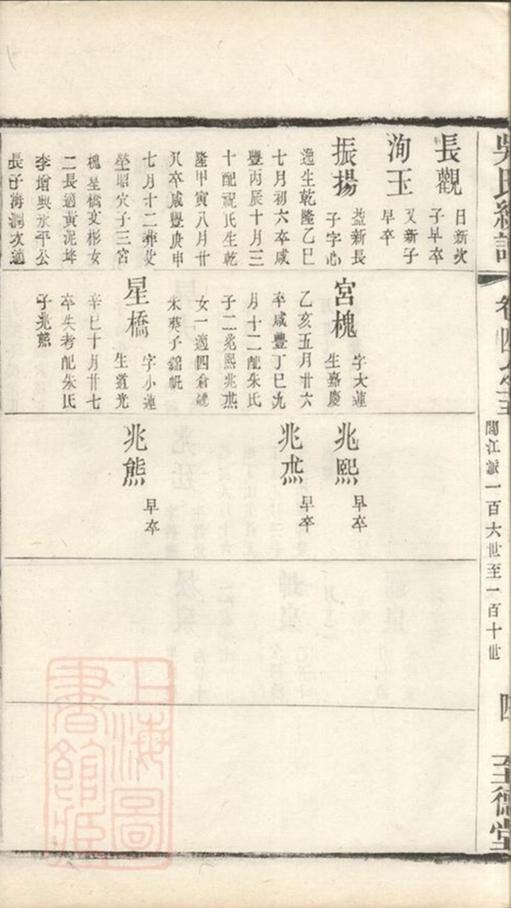 吳氏統譜
閩江派一百六世至一百十世
四
至德堂
長觀
日新次
子早卒
洵玉
又新子
早卒
振揚
益新長
子字心
逸生乾隆乙巳
七月初六卒咸
豐丙辰十月三
十配祝氏生乾
隆甲寅八月廿
八卒咸豐庚申
七月十二葬父
塋昭穴子三宮
槐星橋文彬女
二長適黃泥埄
李增興永平公
長子海潤次適
宮槐
字大蓮
生嘉慶
乙亥五月廿六
卒咸豐丁巳九
月十二配朱氏
子二兆熙兆杰
女一適四倉
朱葵子錦帆
星橋
字小蓮
生道光
辛巳十月廿七
卒失考配朱氏
子兆熊
兆熙
早卒
兆杰
早卒
兆熊
早卒
上海圖書館藏